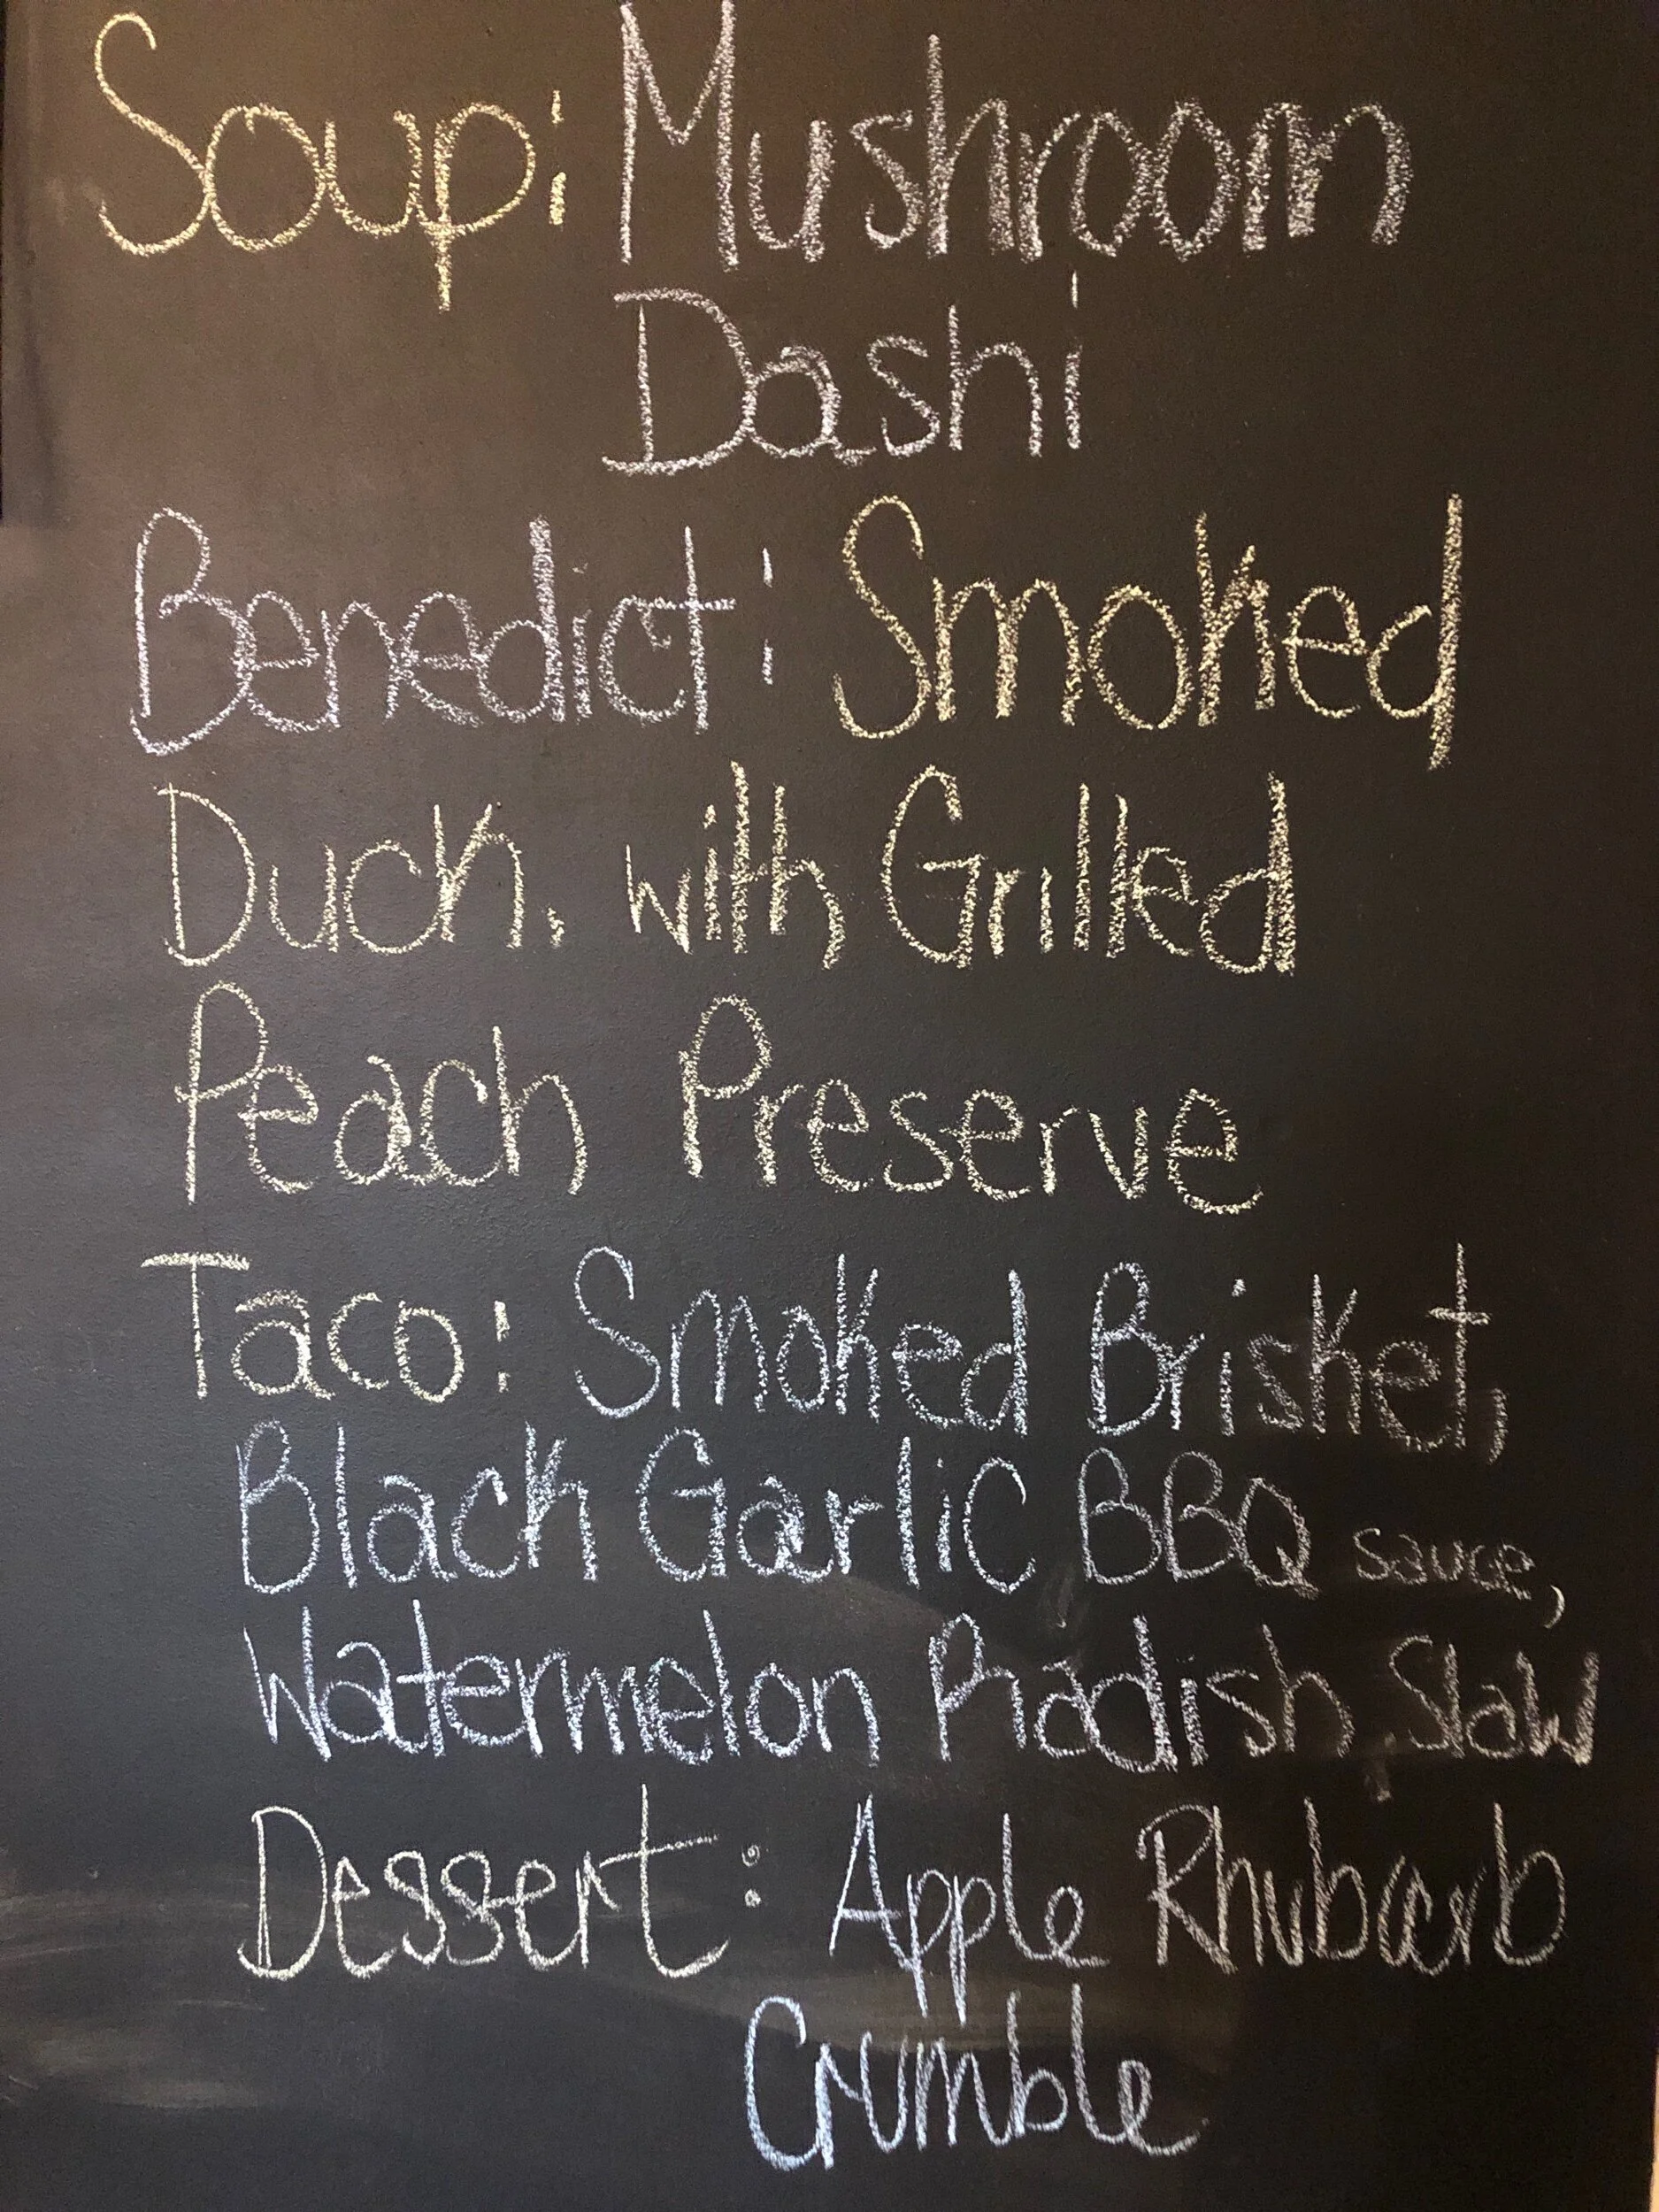 Soup: Mushroom
Dashi
Benedict: Smoked
Duck. with Grilled
Peach Preserve
Taco: Smoked Brisket,
Black Garlic BBQ sauce,
Watermelon Radish Slaw
Dessert: Apple Rhubarb
Crumble